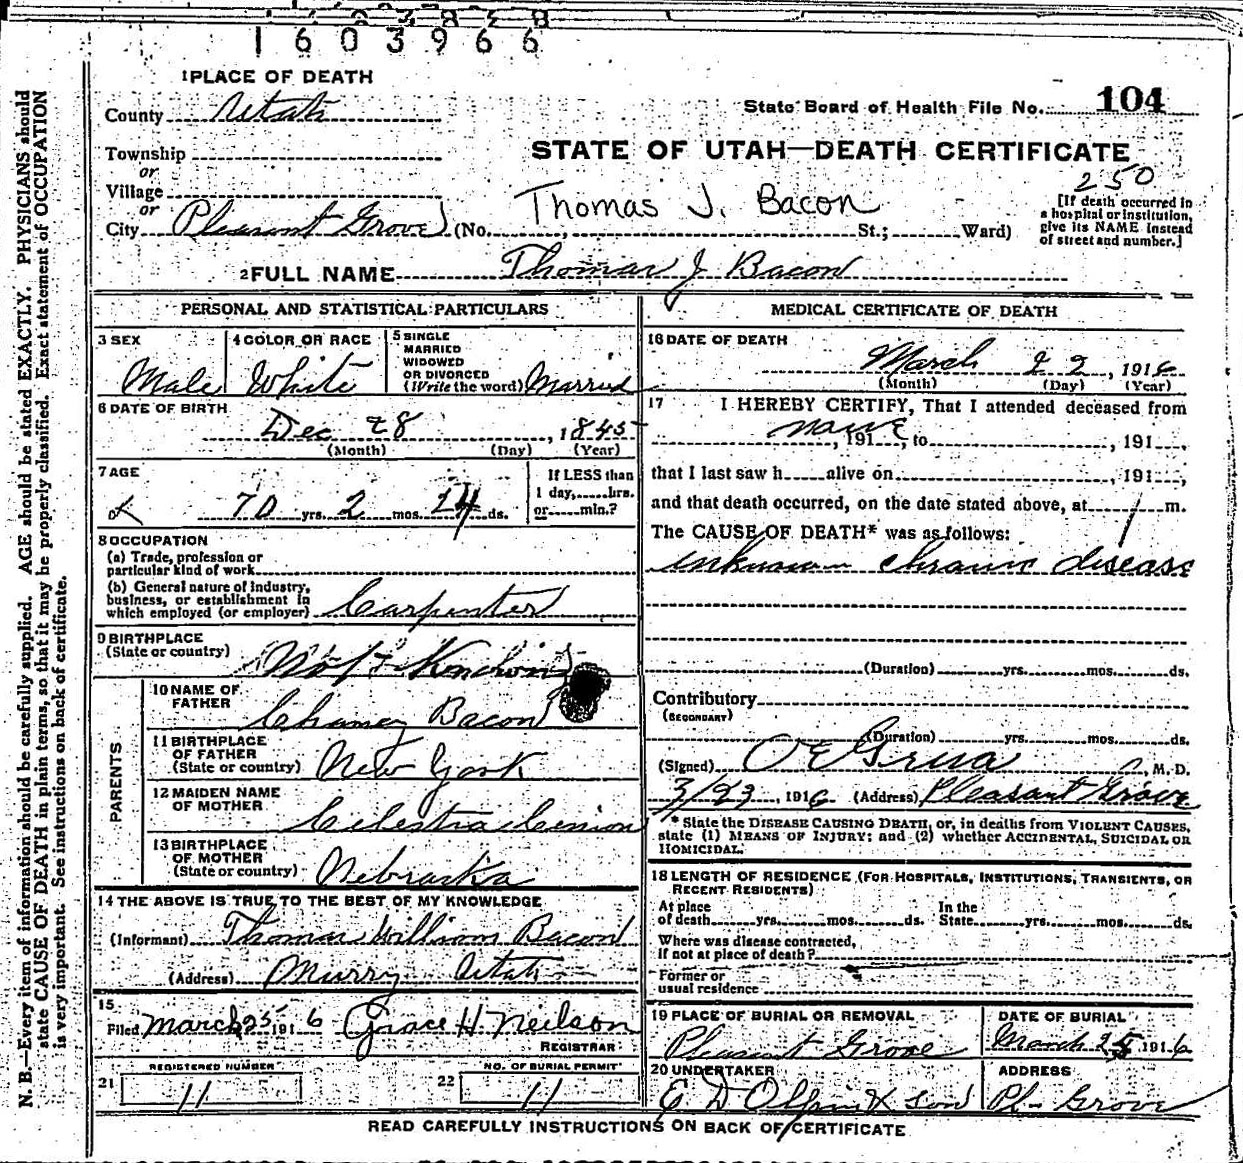 1603966
1 PLACE OF DEATH
County Utah
State Board of Health File No. 104
Township
or
Village
or
City Pleasant Grove (No. , St.; Ward)
STATE OF UTAH—DEATH CERTIFICATE
250
Thomas J. Bacon
[If death occurred in
a hospital or institution,
give its NAME instead
of street and number.]
2 FULL NAME Thomas J Bacon
PERSONAL AND STATISTICAL PARTICULARS
3 SEX
Male
4 COLOR OR RACE
White
5 SINGLE
MARRIED
WIDOWED
OR DIVORCED
(Write the word) Married
6 DATE OF BIRTH
Dec 28, 1845
(Month) (Day) (Year)
7 AGE
70 yrs. 2 mos. 24 ds.
If LESS than
1 day, hrs.
or min.?
8 OCCUPATION
(a) Trade, profession or
particular kind of work
(b) General nature of industry,
business, or establishment in
which employed (or employer) Carpenter
9 BIRTHPLACE
(State or country) Not
PARENTS
10 NAME OF
FATHER
Bacon
11 BIRTHPLACE
OF FATHER
(State or country) New York
12 MAIDEN NAME
OF MOTHER
Celestra
13 BIRTHPLACE
OF MOTHER
(State or country) Nebraska
14 THE ABOVE IS TRUE TO THE BEST OF MY KNOWLEDGE
(Informant) Thomas William Bacon
(Address) Murry Utah
15
Filed March 25 1916 Grace H. Neilson
REGISTRAR
REGISTERED NUMBER
21 11
NO. OF BURIAL PERMIT
22 11
MEDICAL CERTIFICATE OF DEATH
16 DATE OF DEATH
March 22, 1916
(Month) (Day) (Year)
17 I HEREBY CERTIFY, That I attended deceased from
, 191 , to , 191 ,
that I last saw h alive on , 191 ,
and that death occurred, on the date stated above, at 1 m.
The CAUSE OF DEATH* was as follows:
unknown chronic disease
(Duration) yrs. mos. ds.
Contributory
(SECONDARY)
(Duration) yrs. mos. ds.
(Signed) O E Grua, M. D.
3/23, 1916 (Address) Pleasant Grove
* State the DISEASE CAUSING DEATH, or, in deaths from VIOLENT CAUSES,
state (1) MEANS OF INJURY; and (2) whether ACCIDENTAL, SUICIDAL OR
HOMICIDAL.
18 LENGTH OF RESIDENCE (FOR HOSPITALS, INSTITUTIONS, TRANSIENTS, OR
RECENT RESIDENTS)
At place In the
of death yrs. mos. ds. State yrs. mos. ds.
Where was disease contracted,
if not at place of death?
Former or
usual residence
19 PLACE OF BURIAL OR REMOVAL
Pleasant Grove
DATE OF BURIAL
March 25 1916
20 UNDERTAKER
E D Olpin & Son
ADDRESS
Pl- Grove
READ CAREFULLY INSTRUCTIONS ON BACK OF CERTIFICATE
N. B.—Every item of information should be carefully supplied. AGE should be stated EXACTLY. PHYSICIANS should
state CAUSE OF DEATH in plain terms, so that it may be properly classified. Exact statement of OCCUPATION
is very important. See instructions on back of certificate.